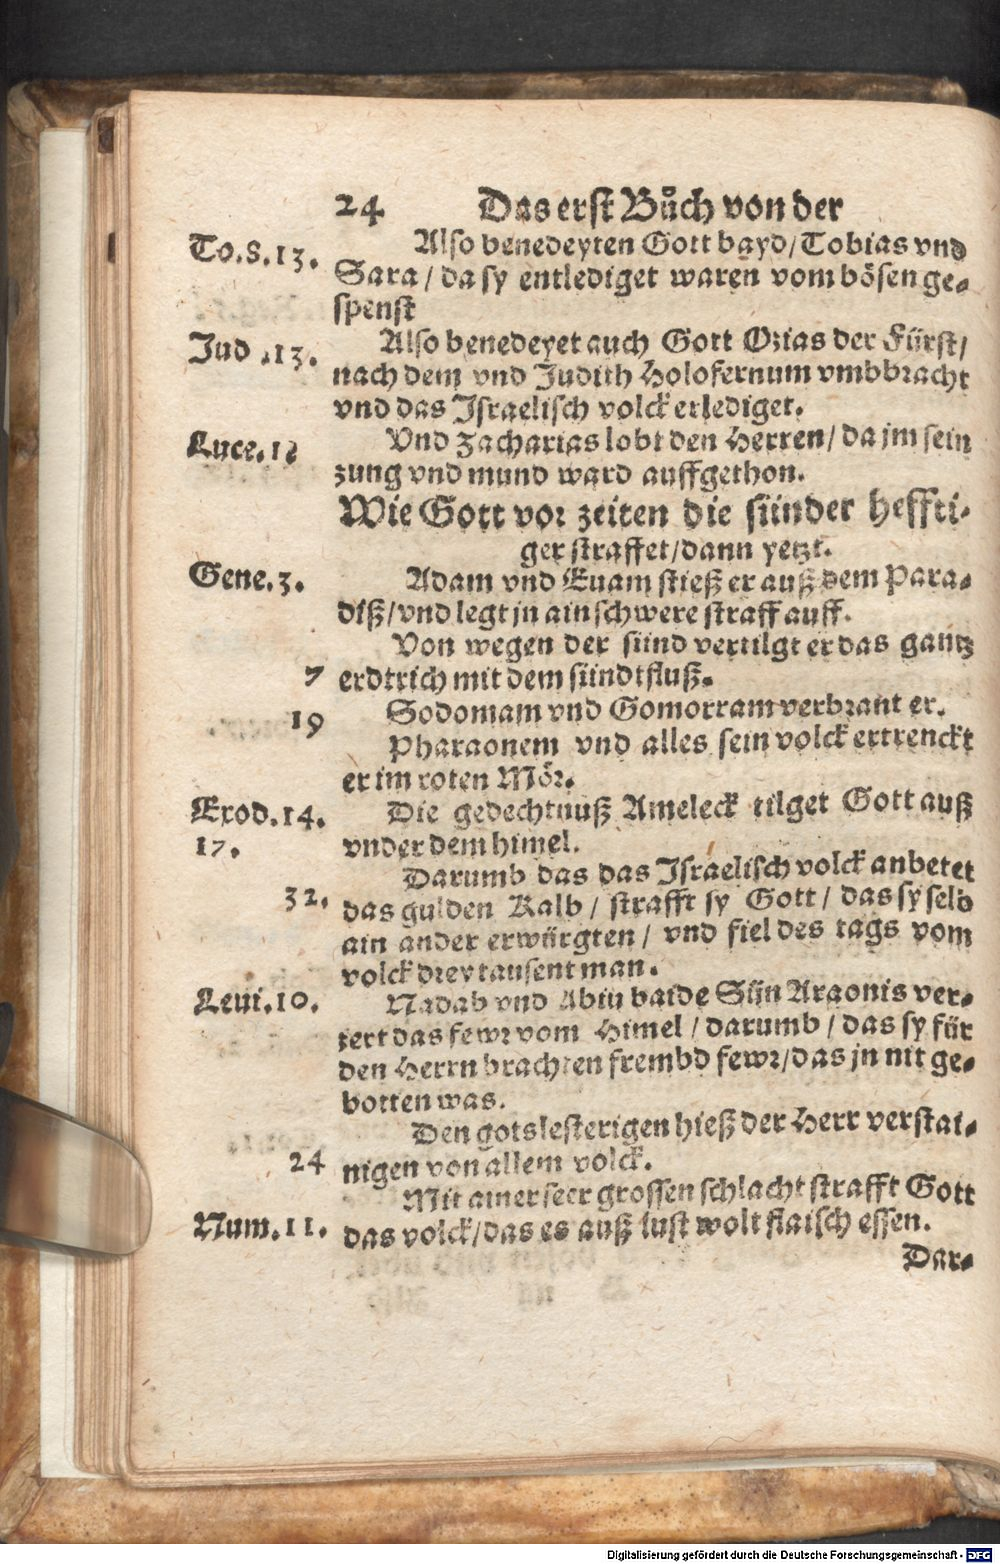 24 Das erst Bůch von der
To.8.13. Also benedeyten Gott bayd/Tobias vnd
Sara/da sy entlediget waren vom bösen ge-
spenst
Jud .13. Also benedeyet auch Gott Ozias der Fürst/
nach dem vnd Judith Holofernum vmbbracht
vnd das Israelisch volck erlediget.
Luce.1 Vnd Zacharias lobt den Herren/da jm sein
zung vnd mund ward auffgethon.
Wie Gott vor zeiten die sünder heffti-
ger straffet/dann yetzt.
Gene.3. Adam vnd Euam stieß er auß dem Para-
diß/vnd legt jn ain schwere straff auff.
Von wegen der sünd vertilgt er das gantz
7 erdtrich mit dem sündtfluß.
19 Sodomam vnd Gomorram verbrant er.
Pharaonem vnd alles sein volck ertrenckt
er im roten Mör.
Exod.14. Die gedechtnuß Ameleck tilget Gott auß
17. vnder dem himel.
Darumb das das Israelisch volck anbetet
32. das gulden Kalb/ strafft sy Gott/ das sy selb
ain ander erwürgten/ vnd fiel des tags vom
volck drey tausent man.
Leui.10. Nadab vnd Abiu baide Sün Araonis ver-
zert das fewr vom Himel/darumb/das sy für
den Herrn brachten frembd fewr/das jn nit ge-
botten was.
Den gotslesterigen hieß der Herr verstai-
24 nigen von allem volck.
Mit ainer seer grossen schlacht strafft Gott
Num.11. das volck/das es auß lust wolt flaisch essen.
Dar-
Digitalisierung gefördert durch die Deutsche Forschungsgemeinschaft - DFG